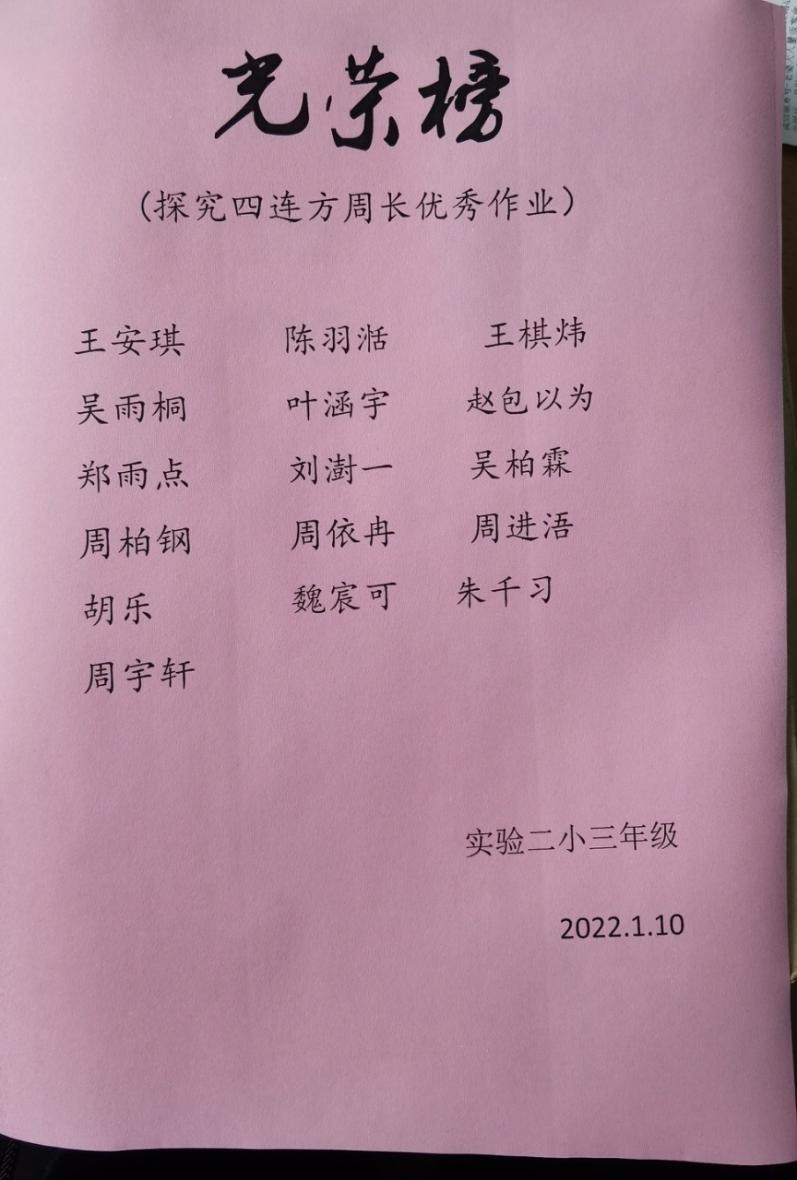 光荣榜
（探究四连方周长优秀作业）
王安琪 陈羽湉 王棋炜
吴雨桐 叶涵宇 赵包以为
郑雨点 刘澍一 吴柏霖
周柏钢 周依冉 周进浯
胡乐 魏宸可 朱千习
周宇轩
实验二小三年级
2022.1.10